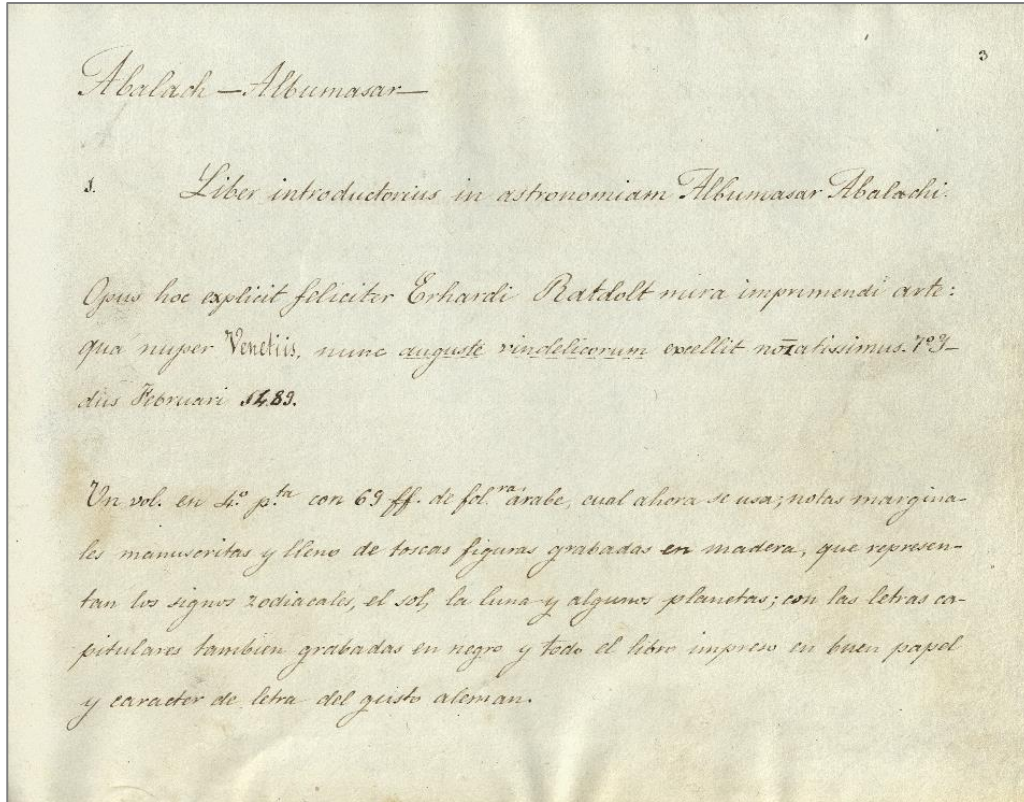 3
Abalach — Albumasar —
1. Liber introductorius in astronomiam Albumasar Abalachi.
Opus hoc explicit feliciter Erhardi Ratdolt mira imprimendi arte:
qua nuper Venetiis, nunc auguste vindelicorum excellit noīatissimus. 7º Y-
dus Februari 1489.
Un vol. en 4º p.ta con 69 ff. de fol.ra árabe, cual ahora se usa; notas margina-
les manuscritas y lleno de toscas figuras grabadas en madera, que represen-
tan los signos zodiacales, el sol, la luna y algunos planetas; con las letras ca-
pitulares tambien grabadas en negro y todo el libro impreso en buen papel
y caracter de letra del gusto aleman.